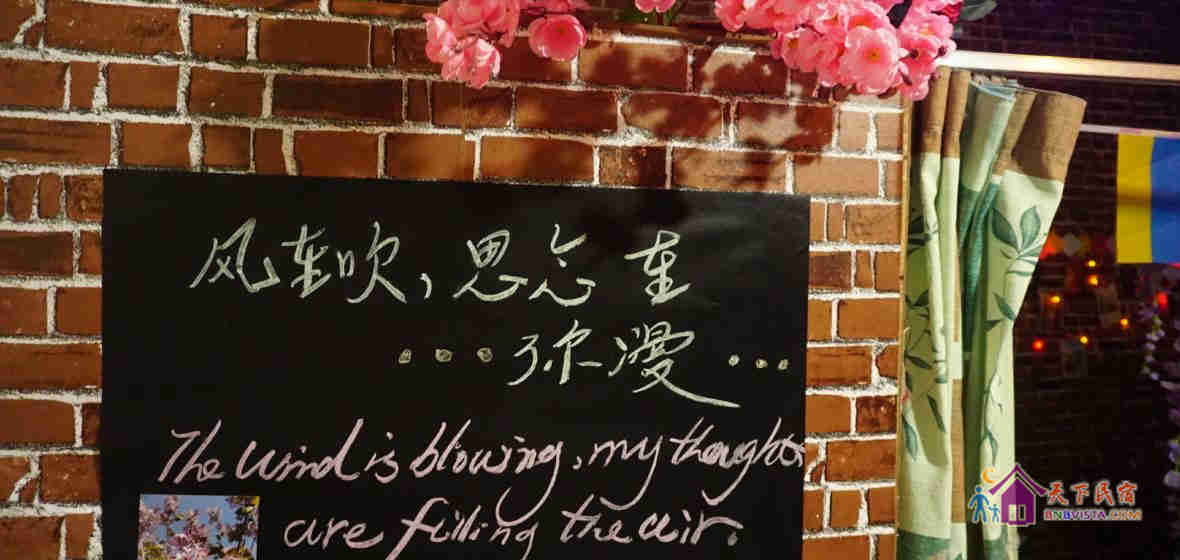 风在吹，思念在
...弥漫...
The wind is blowing, my thoughts
are filling the air.
天下民宿
BNBVISTA.COM